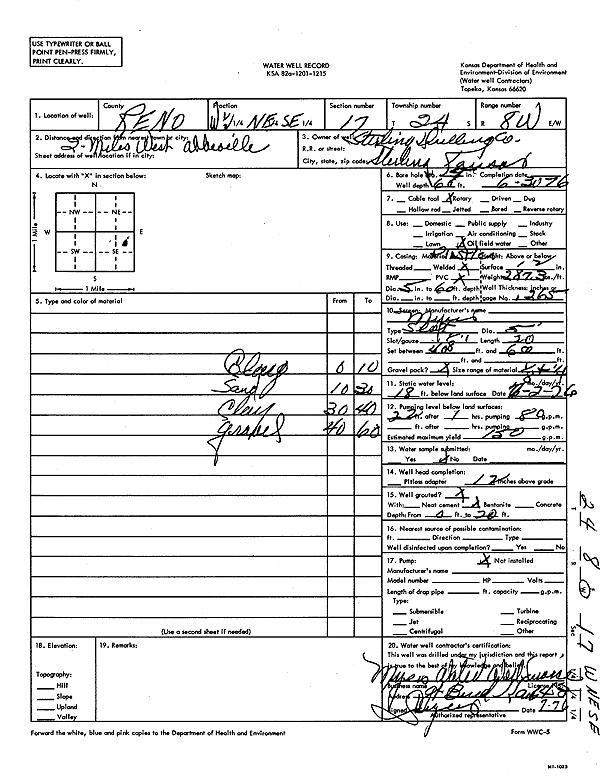 USE TYPEWRITER OR BALL
POINT PEN-PRESS FIRMLY,
PRINT CLEARLY.
WATER WELL RECORD
KSA 82a-1201-1215
Kansas Department of Health and
Environment-Division of Environment
(Water well Contractors)
Topeka, Kansas 66620
1. Location of well: County RENO Fraction W½ 1/4 NE 1/4 SE 1/4 Section number 17 Township number T 24 S Range number R 8W E/W
2. Distance and direction from nearest town or city: 2 Miles West Abbeville
Street address of well location if in city:
3. Owner of well: Sterling Drilling Co.
R.R. or street:
City, state, zip code: Sterling Kansas
4. Locate with "X" in section below: Sketch map:
N
NW NE
W E
SW SE
S
1 Mile
1 Mile
5. Type and color of material From To
0 10
Sand 10 30
Clay 30 40
Gravel 40 60
(Use a second sheet if needed)
6. Bore hole dia. in. Completion date
Well depth 60 ft. 6-30-76
7. Cable tool X Rotary Driven Dug
Hollow rod Jetted Bored Reverse rotary
8. Use: Domestic Public supply Industry
Irrigation Air conditioning Stock
Lawn X Oil field water Other
9. Casing: Material Height: Above or below
Threaded Welded X Surface 12 in.
RMP PVC X Weight 287.3 lbs./ft.
Dia. 5 in. to 60 ft. depth Wall Thickness: inches or
Dia. in. to ft. depth gage No. .265
10. Screen: Manufacturer's name
Type Slot Dia. 5
Slot/gauze Length 20
Set between 40 ft. and 60 ft.
ft. and ft.
Gravel pack? X Size range of material
11. Static water level: mo./day/yr.
18 ft. below land surface Date
12. Pumping level below land surface:
ft. after 1 hrs. pumping 80 g.p.m.
ft. after hrs. pumping g.p.m.
Estimated maximum yield 150 g.p.m.
13. Water sample submitted: mo./day/yr.
Yes X No Date
14. Well head completion:
Pitless adapter 12 Inches above grade
15. Well grouted? X
With: Neat cement X Bentonite Concrete
Depth: From 0 ft. to 20 ft.
16. Nearest source of possible contamination:
ft. Direction Type
Well disinfected upon completion? Yes No
17. Pump: X Not installed
Manufacturer's name
Model number HP Volts
Length of drop pipe ft. capacity g.p.m.
Type:
Submersible Turbine
Jet Reciprocating
Centrifugal Other
18. Elevation:
Topography:
Hill
Slope
Upland
Valley
19. Remarks:
20. Water well contractor's certification:
This well was drilled under my jurisdiction and this report
is true to the best of my knowledge and belief.
Business name License No.
Address
Signed
Authorized representative
Forward the white, blue and pink copies to the Department of Health and Environment Form WWC-5
T 24 R 8 W Sec 17 W NE SE